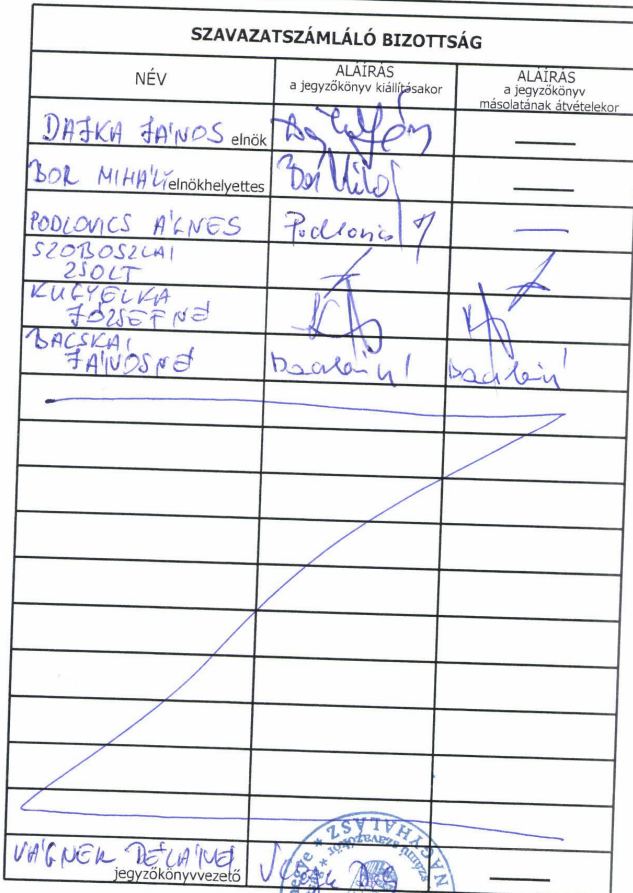 SZAVAZATSZÁMLÁLÓ BIZOTTSÁG
NÉV
ALÁÍRÁS
a jegyzőkönyv kiállításakor
ALÁÍRÁS
a jegyzőkönyv
másolatának átvételekor
DAJKA JÁNOS elnök
BOR MIHÁLY elnökhelyettes
PODLOVICS ÁGNES Podlovics
SZOBOSZLAI
ZSOLT
KUGYELKA
JÓZSEFNÉ
BACSKAI
JÁNOSNÉ
VÁGNER BÉLÁNÉ
jegyzőkönyvvezető
NAGYHALÁSZ
számú szavazókör